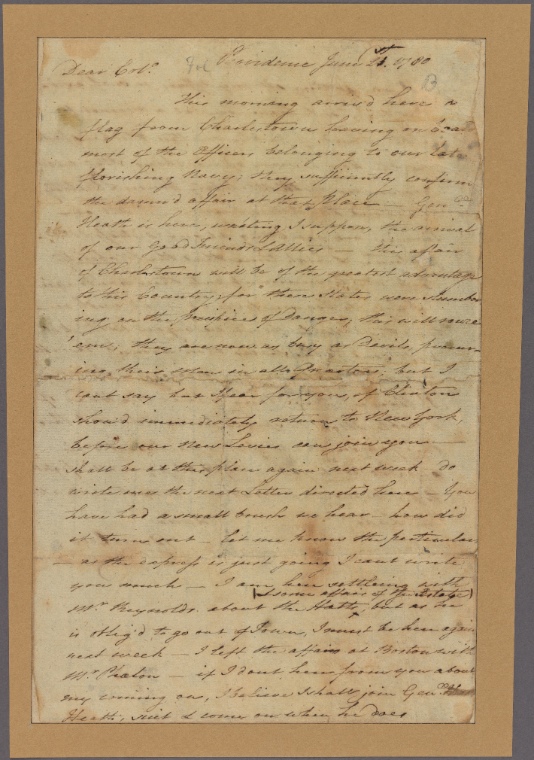 Providence June 21st 1780
Dear Colo.
This morning arriv'd here a
flag from Charlestown having on board
most of the Officers belonging to our late
florishing Navy; they sufficiently confirm
the damn'd affair at that Place — Genl
Heath is here, waiting I suppose, the arrival
of our Good Friends & Allies — the affair
of Charlestown will be of the greatest advantage
to this Country, for these States were slumber
ing on the Precipice of Danger, this will rouse
'em; they are now as busy as Devils, procur-
ing their men in all Quarters; but I
cant say but I fear for you, if Clinton
should immediately return to New York,
before our New Levies can join you —
shall be at this place again next week Do
write me the next Letter directed here — You
have had a small brush we hear — how did
it turn out — let me know the particulars
— as the express is just going I cant write
you much — I am here settleing with
(some affairs of the Estate)
Mr Reynolds about the Hatts, but as he
is oblig'd to go out of Town, I must be here again
next week — I left the affairs at Boston with
Mr — if I dont hear from you about
my coming on, I believe I shall join Genl
Heath, & come on when he does